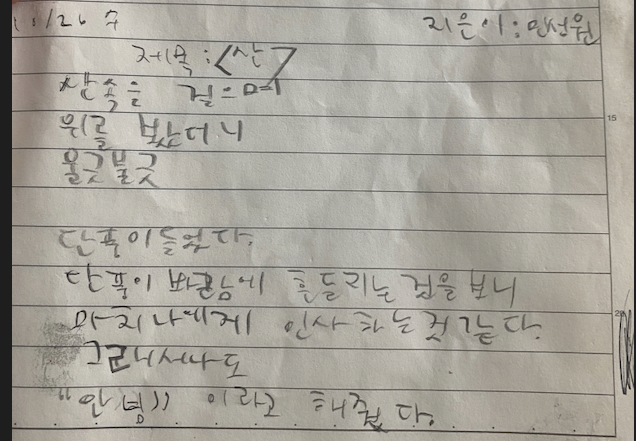 10/26 수 지은이:민선원
제목:<산>
산속을 걸으며
위를 봤더니
울긋불긋
단풍이들었다.
단풍이 바람에 흔들리는 것을 보니
마치나에게 인사하는것 같다.
그래서나도
"안녕" 이라고 해줬다.